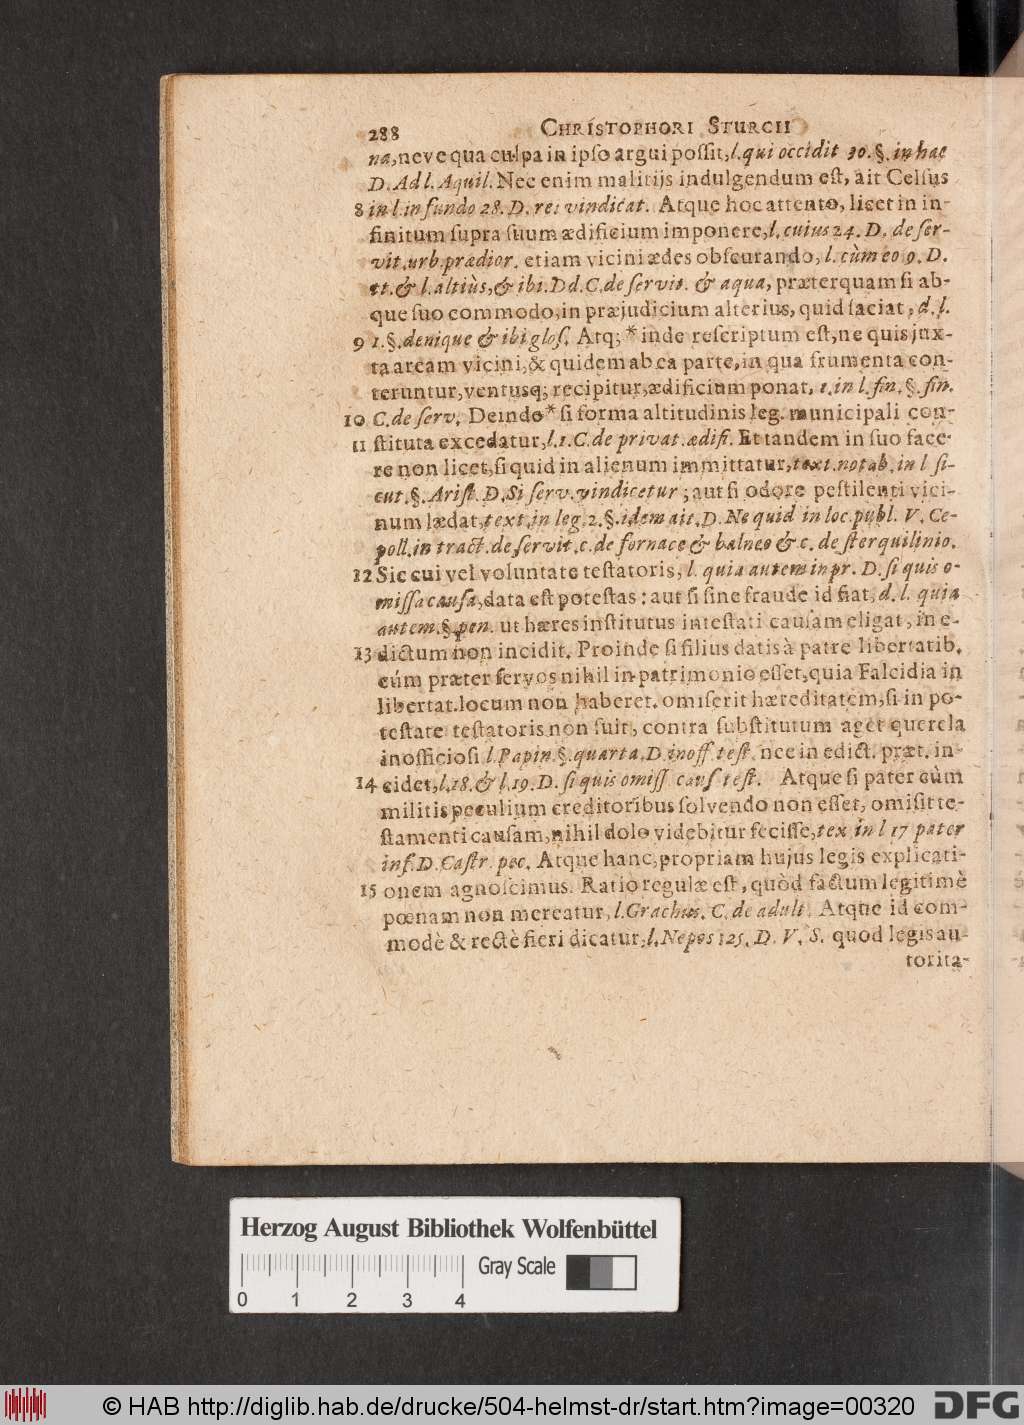 288 CHRISTOPHORI STURCII
na, neve qua culpa in ipso argui possit, l. qui occidit 30. §. in hac
D. Ad l. Aquil. Nec enim malitijs indulgendum est, ait Celsus
8 in l. in fundo 28. D. rei vindicat. Atque hoc attento, licet in in-
finitum supra suum ædificium imponere, l. cuius 24. D. de ser-
vit. urb. prædior. etiam vicini ædes obscurando, l. cùm eo 9. D.
et. & l. altiùs, & ibi. Dd. C. de servit. & aqua, præterquam si ab-
que suo commodo, in præjudicium alterius, quid faciat, d. l.
9 1. §. denique & ibi glos. Atq; * inde rescriptum est, ne quis jux-
ta aream vicini, & quidem ab ea parte, in qua frumenta con-
teruntur, ventusq; recipitur, ædificium ponat, t. in l. fin. §. fin.
10 C. de serv. Deinde * si forma altitudinis leg. municipali con-
11 stituta excedatur, l. 1. C. de privat. ædifi. Et tandem in suo face-
re non licet, si quid in alienum immittatur, text. notab. in l si-
cut. §. Arist. D. Si serv. vindicetur; aut si odore pestilenti vici-
num lædat, text. in leg. 2. §. idem ait. D. Ne quid in loc. publ. V. Ce-
poll. in tract. de servit. c. de fornace & balneo & c. de sterquilinio.
12 Sic cui vel voluntate testatoris, l. quia autem in pr. D. si quis o-
missa causa, data est potestas: aut si sine fraude id fiat, d. l. quia
autem. §. pen. ut hæres institutus intestati causam eligat, in e-
13 dictum non incidit. Proinde si filius datis à patre libertatib.
cúm præter servos nihil in patrimonio esset, quia Falcidia in
libertat. locum non haberet. omiserit hæreditatem, si in po-
testate testatoris non fuit, contra substitutum aget querela
inofficiosi l. Papin. §. quarta. D. inoff. test. nec in edict. præt. in-
14 cidet, l. 18. & l. 19. D. si quis omiss caus test. Atque si pater cùm
militis peculium creditoribus solvendo non esset, omisit te-
stamenti causam, nihil dolo videbitur fecisse, tex in l 17 pater
inf. D. Castr. pec. Atque hanc, propriam hujus legis explicati-
15 onem agnoscimus. Ratio regulæ est, quòd factum legitimè
pœnam non mereatur, l. Grachus. C. de adult. Atque id com-
modè & rectè fieri dicatur, l. Nepos 125. D. V. S. quod legis au-
torita-
Herzog August Bibliothek Wolfenbüttel
Gray Scale
0 1 2 3 4
© HAB http://diglib.hab.de/drucke/504-helmst-dr/start.htm?image=00320
DFG